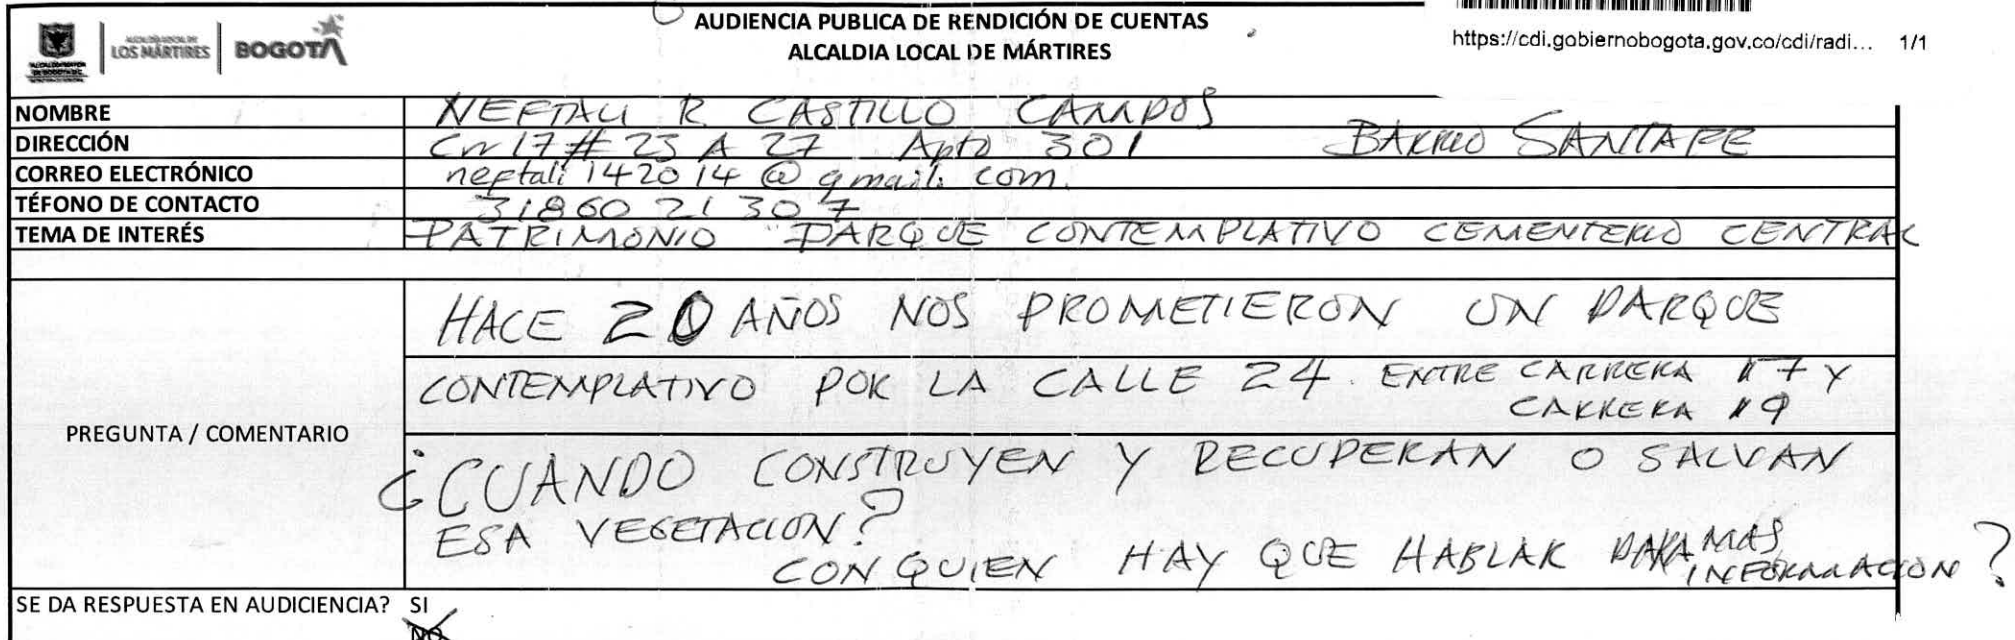 AUDIENCIA PUBLICA DE RENDICIÓN DE CUENTAS
ALCALDIA LOCAL DE MÁRTIRES
https://cdi.gobiernobogota.gov.co/cdi/radi... 1/1
LOS MÁRTIRES BOGOTÁ
NOMBRE NEFTALI R CASTILLO CAMPOS
DIRECCIÓN Cr 17 # 23 A 27 Apto 301 BARRIO SANTAFE
CORREO ELECTRÓNICO neftali142014@gmail.com.
TÉFONO DE CONTACTO 31860 21 307
TEMA DE INTERÉS PATRIMONIO PARQUE CONTEMPLATIVO CEMENTERIO CENTRAL
HACE 20 AÑOS NOS PROMETIERON UN PARQUE
CONTEMPLATIVO POR LA CALLE 24 ENTRE CARRERA 17 Y
CARRERA 19
PREGUNTA / COMENTARIO
¿CUANDO CONSTRUYEN Y RECUPERAN O SALVAN
ESA VEGETACION?
CON QUIEN HAY QUE HABLAR PARA MAS
INFORMACION?
SE DA RESPUESTA EN AUDICIENCIA? SI
NO